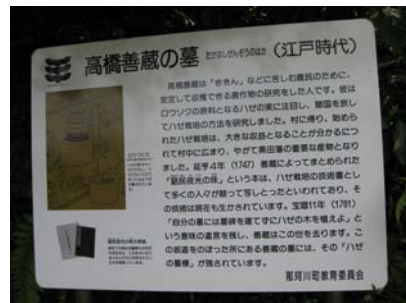 高橋善蔵の墓 (江戸時代)
たかはしぜんぞうのはか
高橋善蔵は「ききん」などに苦しむ農民のために、
安定して収穫できる農作物の研究をした人です。彼は
ロウソクの原料となるハゼの実に注目し、諸国を旅し
てハゼ栽培の方法を研究しました。村に帰り、始めら
れたハゼ栽培は、大きな収益となることが分かるにつ
れて村中に広まり、やがて黒田藩の重要な産物となり
ました。延亨4年(1747)善蔵によってまとめられた
「窮民夜光の珠」という本は、ハゼ栽培の技術書とし
て多くの人々が競って写しとったといわれており、そ
の技術は現在も生かされています。宝暦11年(1761)
「自分の墓には墓碑を建てずにハゼの木を植えよ」と
いう意味の遺言を残し、善蔵はこの世を去ります。こ
の坂道をのぼった所にある善蔵の墓には、その「ハゼ
の墓標」が残されています。
那珂川町教育委員会